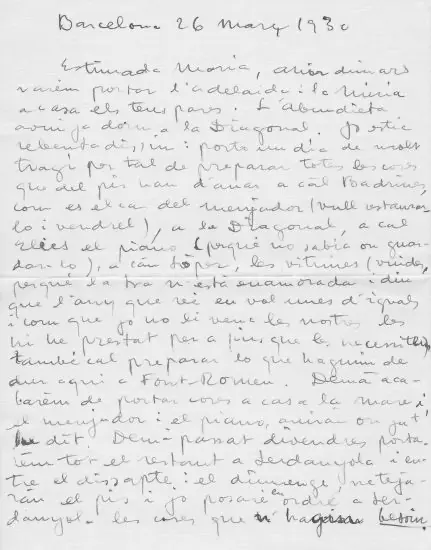 Barcelona 26 març 1930
Estimada Maria, ahir dimars
varem portar l'Adelaida i la Núria
a casa els teus pares. L'Abundieta
avui ja dorm a la Diagonal. Jo estic
rebentadíssim: porto un dia de molt
tragí per tal de preparar totes les coses
que del pis han d'anar a cal Badrinas,
com es el ca del menjador (vull restaurar
lo i vendrel), a la Diagonal, a cal
el piano (perquè no sabia on guar
dar-lo), a can López, les vitrines (vuides,
perquè la tra n'està enamorada i diu
que l'any que vé en vol unes d'iguals
i com que jo no li venc les nostres les
hi he prestat per a fins que les necessitem
també cal preparar lo que haguim de
dur aquí a Font-Romeu. Demà aca-
barém de portar coses a casa la mare i
el menjador i el piano, aniran on ja t'
he dit. Demà passat divendres porta
rém tot el restant a Serdanyola i en-
tre el dissapte i el diumenge neteja-
ràn el pis i jo posaré en ordre a Ser-
danyola les coses que besoin.